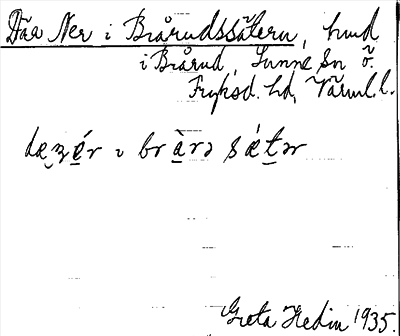 Där Ner i Brårudssätern, hund
i Brårud, Sunne sn ö.
Fryksd. hd, Värml. l.
dæ̞ʒ é̠r ı br à̠rə s ǽt̠ər
Greta Hedin 1935.